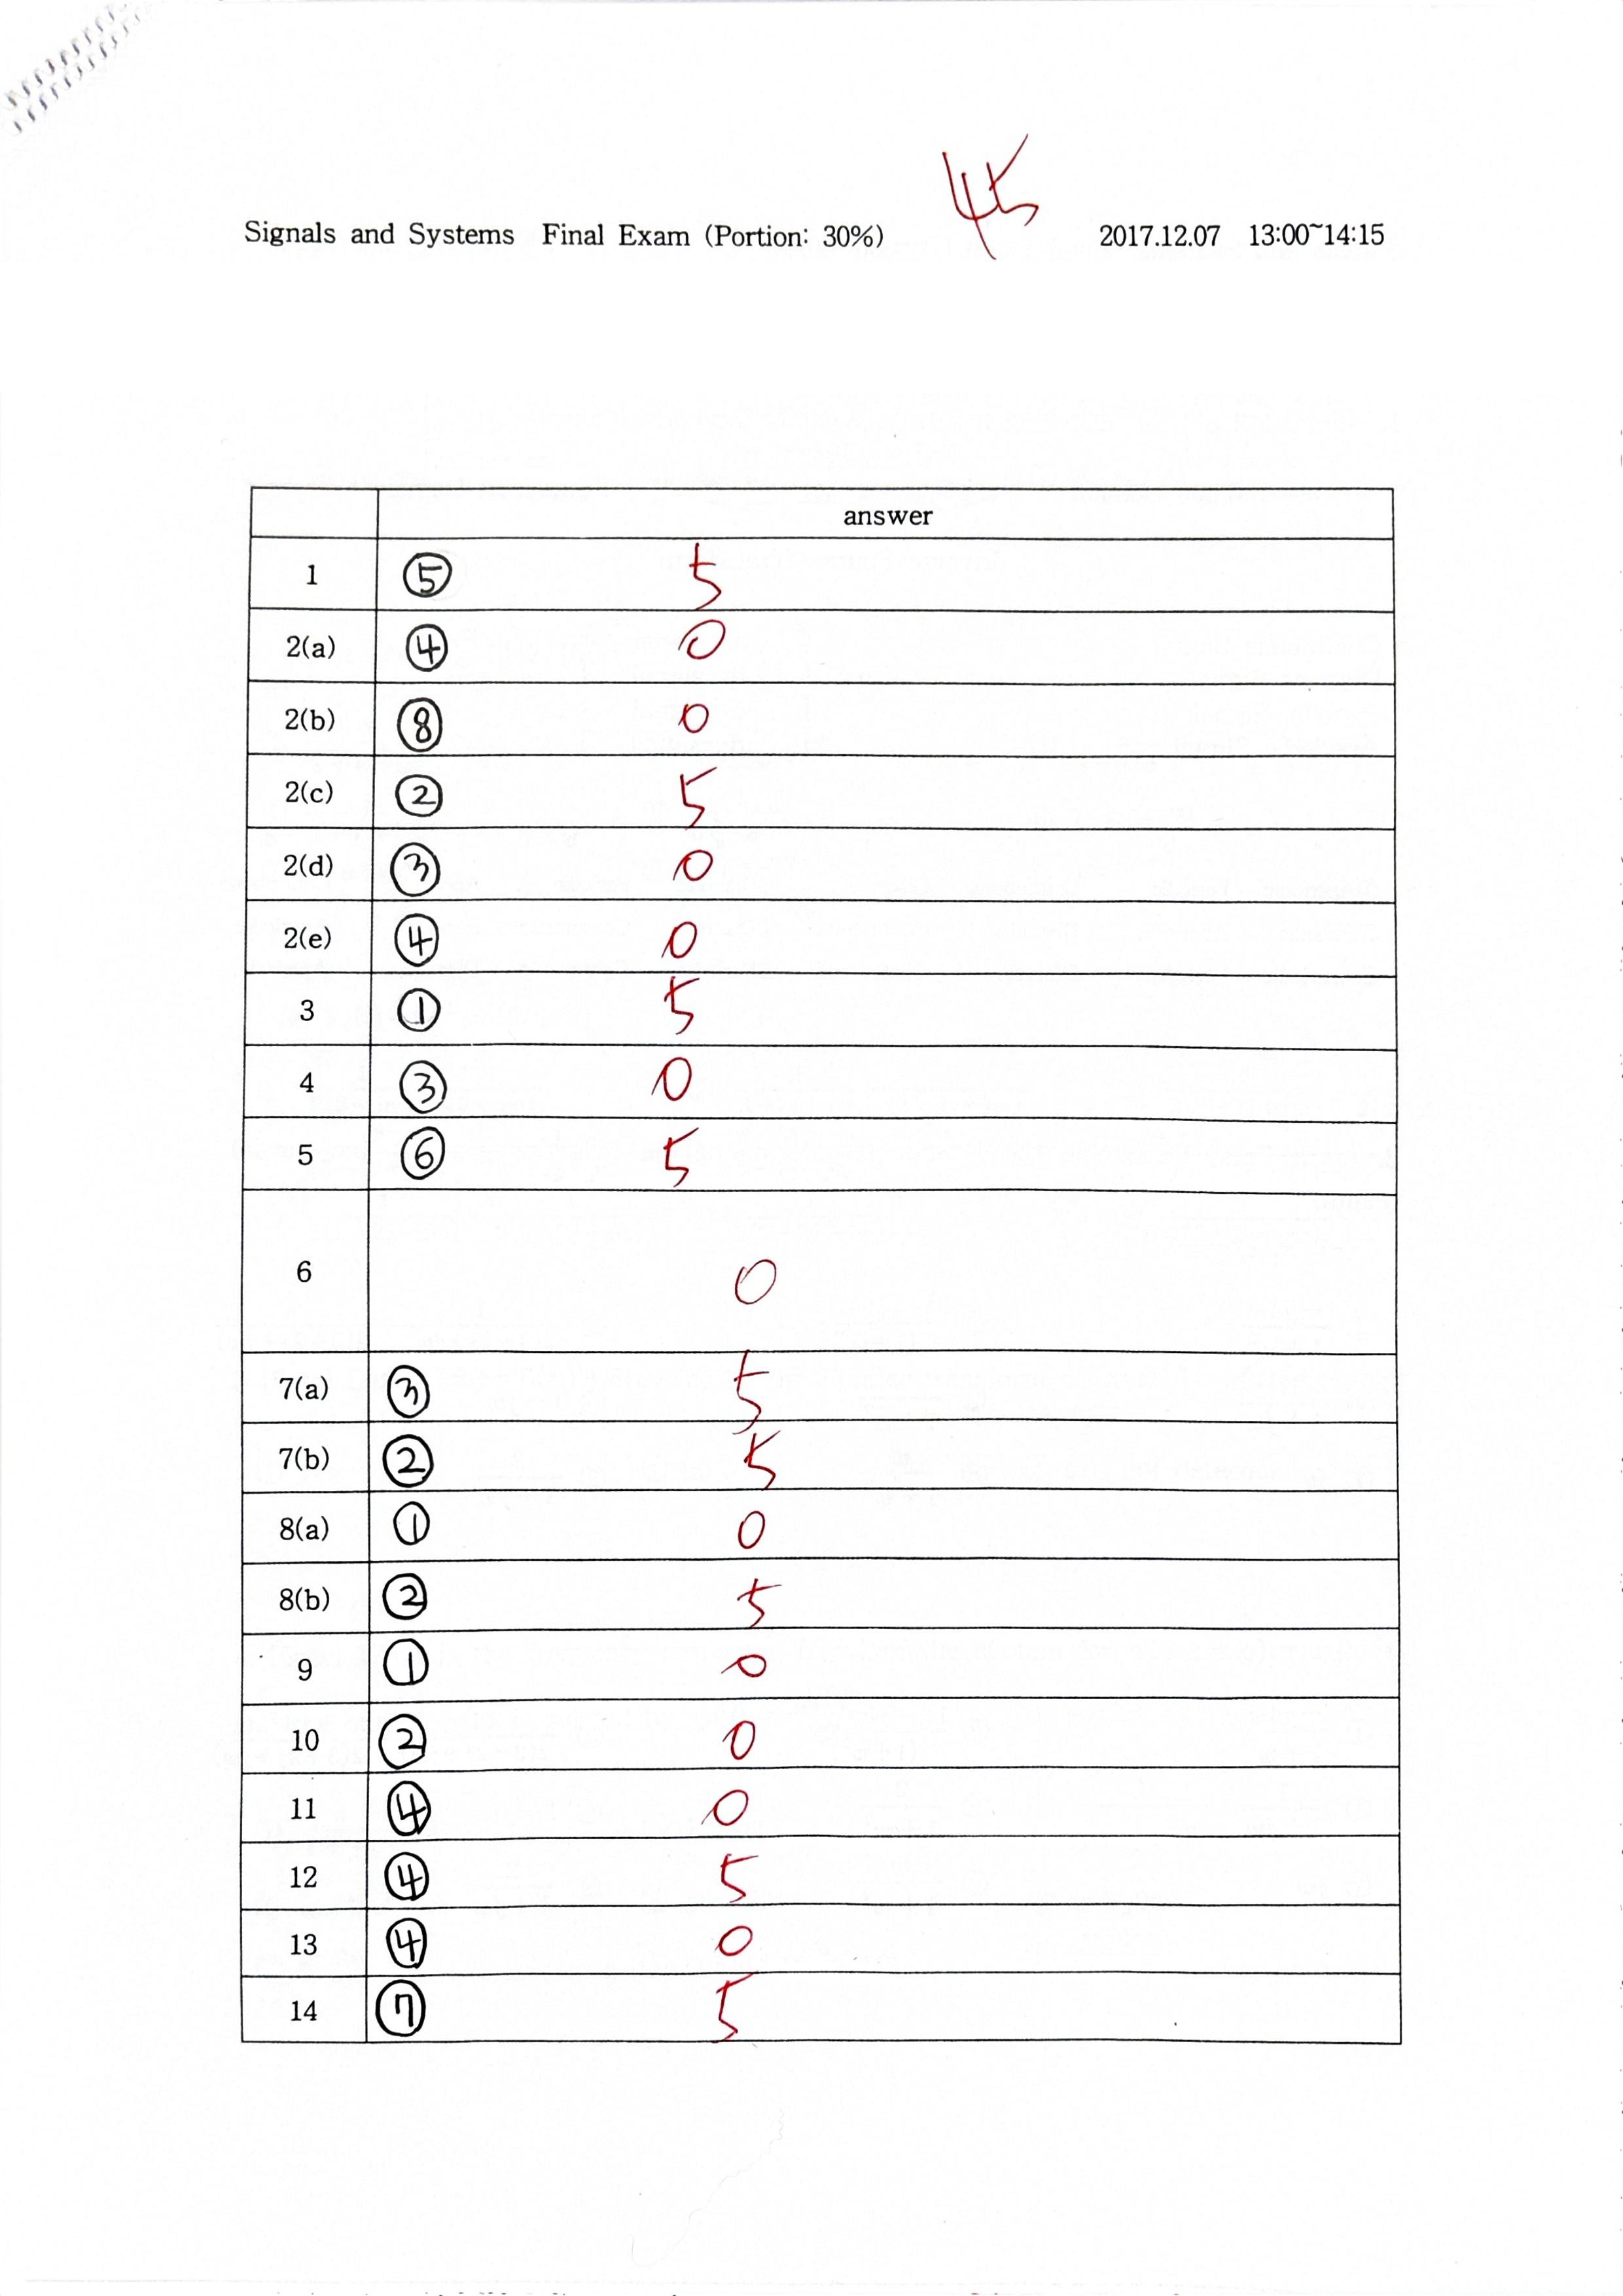 45
Signals and Systems Final Exam (Portion: 30%) 2017.12.07 13:00~14:15
answer
1 ⑤ 5
2(a) ④ 0
2(b) ⑧ 0
2(c) ② 5
2(d) ③ 0
2(e) ④ 0
3 ① 5
4 ③ 0
5 ⑥ 5
6 0
7(a) ③ 5
7(b) ② 5
8(a) ① 0
8(b) ② 5
9 ① 0
10 ② 0
11 ④ 0
12 ④ 5
13 ④ 0
14 ⑦ 5